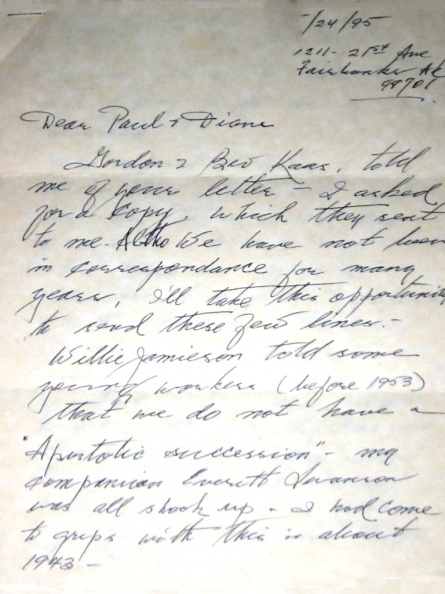 /24/95
1211 - 21st Ave
Fairbanks AK
99701
Dear Paul & Diane
Gordon & Bev Kaas, told
me of your letter - I asked
for a copy, which they sent
to me. Altho We have not been
in correspondance for many
years, I'll take this opportunit
to send these few lines. -
Willie Jamieson told some
young workers (before 1953)
that we do not have a
"Apostolic succession" - my
companion Everett Swanson
was all shook up - I had come
to grips with this in about
1943 -